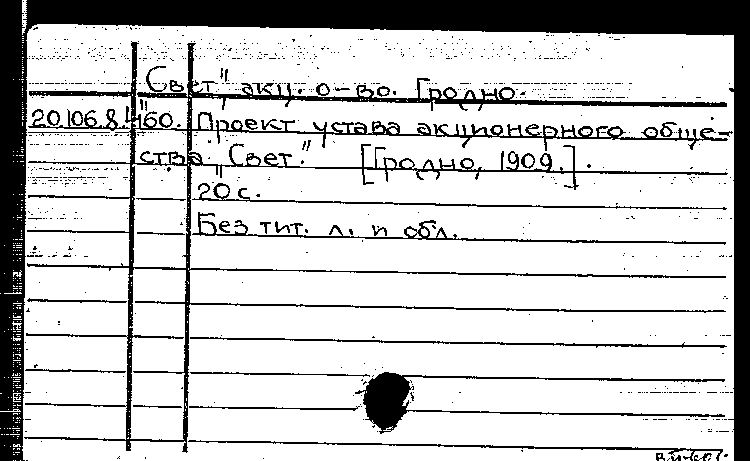 "Свет" акц. о-во. Гродно.
20.106.8.460. Проект устава акционерного обще-
ства "Свет." [Гродно, 1909.].
20 с.
Без тит. л. и обл.